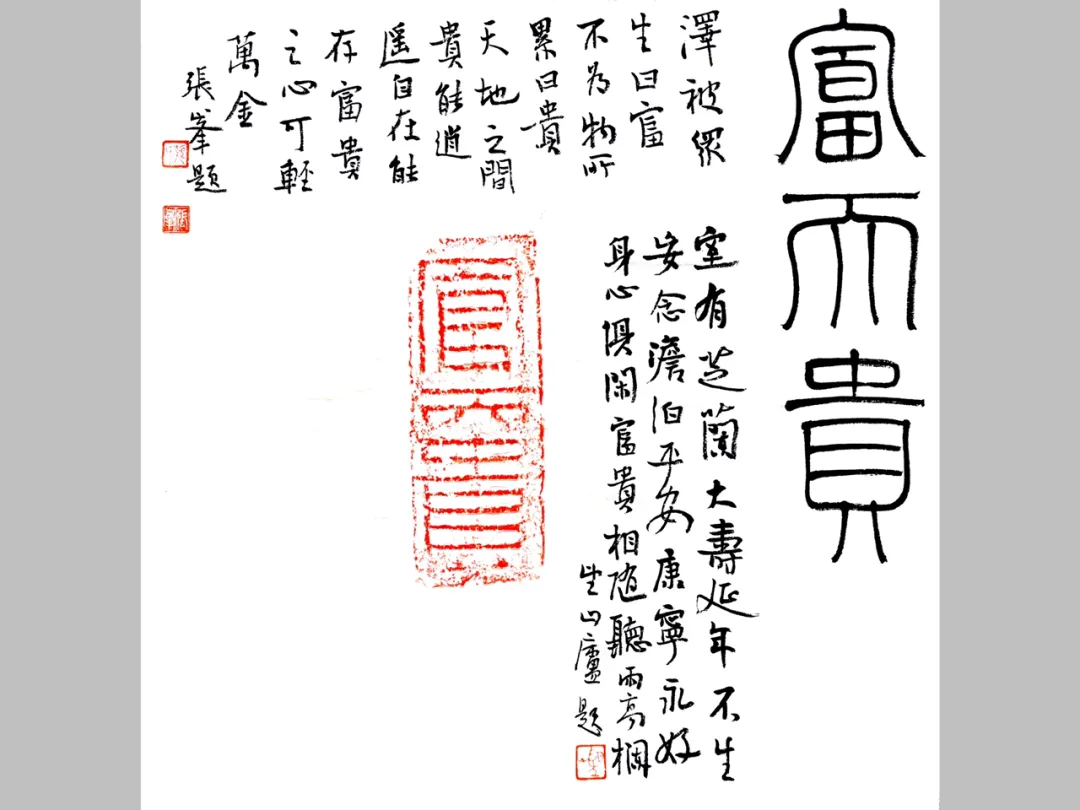 富而貴
澤被眾
生曰富
不為物所
累曰貴
天地之間
貴能逍
遥自在能
存富貴
之心可輕
萬金
張峯題
室有芝蘭大壽延年不生
妄念澹泊平安康寧永好
身心俱閑富貴相随聽雨高桐
山廬題
富而貴